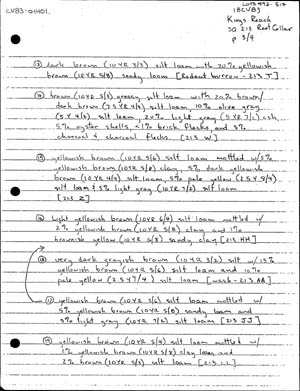 CVB3-0401.
LOTS 492-517
18CVB3
Kings Reach
SQ 213 Root Cellar
p 3/4
(13) dark brown (10YR 3/3) silt loam with 20% yellowish
brown (10YR 5/8) sandy loam [Rodent burrow - 213 J]
(14) brown (10YR 5/3) greasy silt loam with 20% brown/
dark brown (7.5YR 4/4) silt loam, 10% olive gray
(5Y 4/2) silt loam, 20% light gray (5Y 7/1) ash,
5% oyster shells, <1% brick flecks, and 5%
charcoal & charcoal flecks. [213 W]
(15) yellowish brown (10YR 5/6) silt loam mottled w/5%
yellowish brown (10YR 5/8) clay, 5% dark yellowish
brown (10YR 4/4) silt loam, 5% pale yellow (2.5Y 7/4)
silt loam & 5% light gray (10YR 7/2) silt loam
[213 Z]
(16) light yellowish brown (10YR 6/4) silt loam mottled w/
2% yellowish brown (10YR 5/8) clay and 1%
brownish yellow (10YR 6/8) sandy clay [213 HH]
(18) very dark grayish brown (10YR 3/2) silt w/15%
yellowish brown (10YR 5/6) silt loam and 10%
pale yellow (2.5Y 7/4) silt loam [wash - 213 AB]
(17) yellowish brown (10YR 5/6) silt loam mottled w/
5% yellowish brown (10YR 5/8) sandy loam and
5% light gray (10YR 7/2) silt loam [213 JJ]
(19) yellowish brown (10YR 5/4) silt loam mottled w/
1% yellowish brown (10YR 5/8) clay loam and
2% brown (10YR 5/3) silt loam [213 LL]